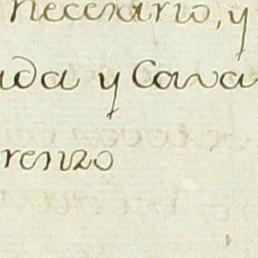 necesario, y
ada y Cava
renzo